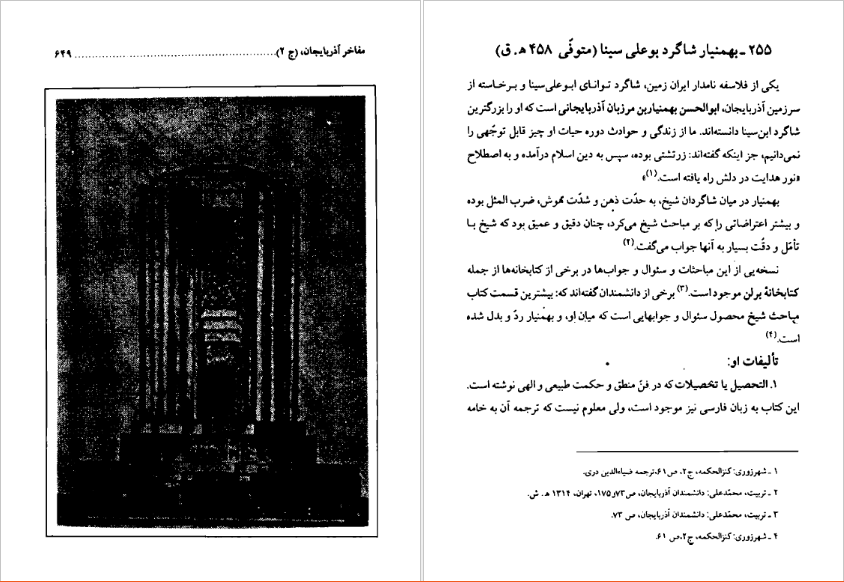 ۲۵۵ ـ بهمنیار شاگرد بوعلی سینا (متوفّی ۴۵۸ ه‍. ق)
یکی از فلاسفه نامدار ایران زمین، شاگرد توانای ابوعلی‌سینا و برخاسته از
سرزمین آذربایجان، ابوالحسن بهمنیاربن مرزبان آذربایجانی است که او را بزرگترین
شاگرد ابن‌سینا دانسته‌اند. ما از زندگی و حوادث دوره حیات او چیز قابل توجّهی را
نمی‌دانیم، جز اینکه گفته‌اند: زرتشتی بوده، سپس به دین اسلام درآمده و به اصطلاح
«نور هدایت در دلش راه یافته است.(۱)»
بهمنیار در میان شاگردان شیخ، به حدّت ذهن و شدّت هوش، ضرب المثل بوده
و بیشتر اعتراضاتی را که بر مباحث شیخ می‌کرد، چنان دقیق و عمیق بود که شیخ با
تأمّل و دقّت بسیار به آنها جواب می‌گفت.(۲)
نسخه‌یی از این مباحثات و سئوال و جواب‌ها در برخی از کتابخانه‌ها از جمله
کتابخانهٔ برلن موجود است.(۳) برخی از دانشمندان گفته‌اند که: بیشترین قسمت کتاب
مباحث شیخ محصول سئوال و جوابهایی است که میان او، و بهمنیار ردّ و بدل شده
است.(۴)
تألیفات او:
۱. التحصیل یا تحصیلات که در فنّ منطق و حکمت طبیعی و الهی نوشته است.
این کتاب به زبان فارسی نیز موجود است، ولی معلوم نیست که ترجمه آن به خامه
۱ ـ شهرزوری: کنزالحکمه، ج۲، ص۶۱،ترجمه ضیاءالدین دری.
۲ ـ تربیت، محمّدعلی: دانشمندان آذربایجان، ص۷۳و۱۷۵، تهران، ۱۳۱۴ ه‍. ش.
۳ ـ تربیت، محمّدعلی: دانشمندان آذربایجان، ص ۷۳.
۴ ـ شهرزوری: کنزالحکمه، ج۲،ص ۶۱.
مفاخر آذربایجان، (ج ۲) ........................................................ ۶۴۹